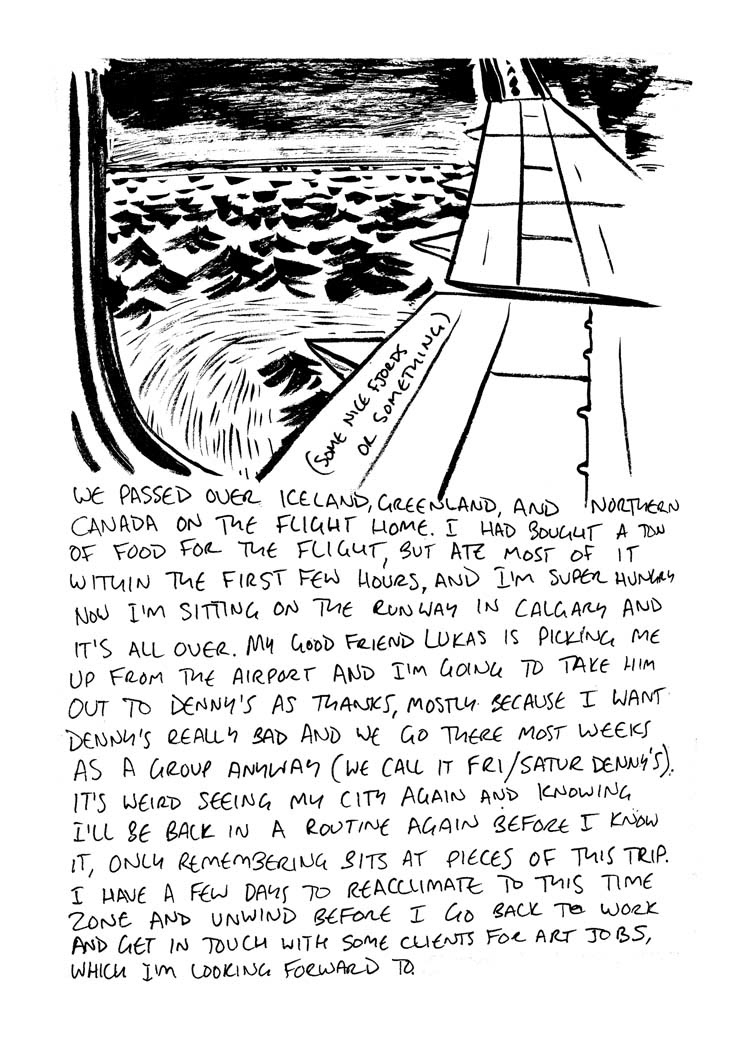 (SOME NICE FJORDS
OR SOMETHING)
WE PASSED OVER ICELAND, GREENLAND, AND NORTHERN
CANADA ON THE FLIGHT HOME. I HAD BOUGHT A TON
OF FOOD FOR THE FLIGHT, BUT ATE MOST OF IT
WITHIN THE FIRST FEW HOURS, AND I'M SUPER HUNGRY
NOW I'M SITTING ON THE RUNWAY IN CALGARY AND
IT'S ALL OVER. MY GOOD FRIEND LUKAS IS PICKING ME
UP FROM THE AIRPORT AND I'M GOING TO TAKE HIM
OUT TO DENNY'S AS THANKS, MOSTLY BECAUSE I WANT
DENNY'S REALLY BAD AND WE GO THERE MOST WEEKS
AS A GROUP ANYWAY (WE CALL IT FRI/SATUR DENNY'S).
IT'S WEIRD SEEING MY CITY AGAIN AND KNOWING
I'LL BE BACK IN A ROUTINE AGAIN BEFORE I KNOW
IT, ONLY REMEMBERING BITS AT PIECES OF THIS TRIP.
I HAVE A FEW DAYS TO REACCLIMATE TO THIS TIME
ZONE AND UNWIND BEFORE I GO BACK TO WORK
AND GET IN TOUCH WITH SOME CLIENTS FOR ART JOBS,
WHICH I'M LOOKING FORWARD TO.